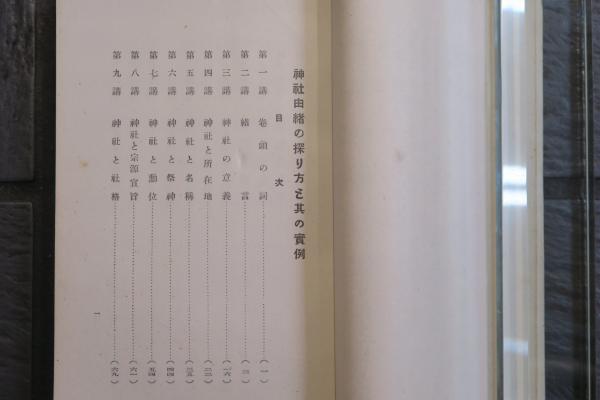 神社由緒の探り方と其の實例
目次
第一講 卷頭の詞……(一)
第二講 緒言……(三)
第三講 神社の意義……(一六)
第四講 神社と所在地……(二二)
第五講 神社と名稱……(三五)
第六講 神社と祭神……(四四)
第七講 神社と勳位……(五四)
第八講 神社と宗源宣旨……(六一)
第九講 神社と社格……(六九)
一